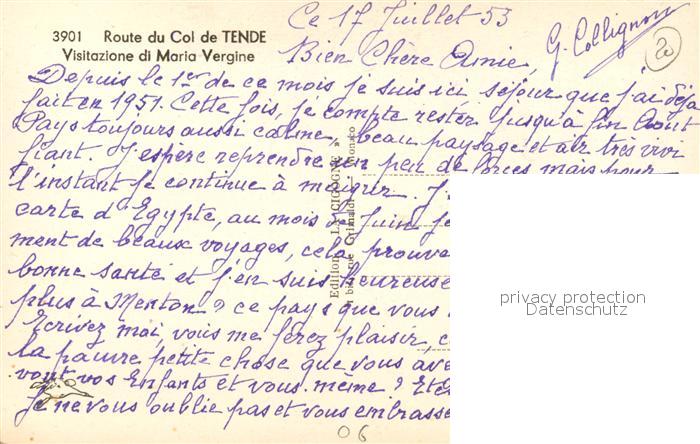 Ce 17 Juillet 53
3901 Route du Col de TENDE
Visitazione di Maria Vergine
G. Collignon
20
Bien Chère Amie,
Depuis le 1er de ce mois je suis ici, séjour que j'ai déjà
fait en 1951. Cette fois, je compte rester jusqu'à fin Août
Pays toujours aussi calme, beau paysage et air très vivi
fiant. J'espère reprendre un peu de forces mais pour
l'instant je continue à maigrir. J
carte d'Egypte, au mois de Juin je
ment de beaux voyages, cela prouve
bonne santé et j'en suis heureuse
plus à Menton ? ce pays que vous
Ecrivez moi, vous me ferez plaisir, c
la pauvre petite chose que vous ave
vont vos Enfants et vous même ? Et
Je ne vous oublie pas et vous embrasse
Editions "LA CIGOGNE"
Grimaldi Monaco
privacy protection
Datenschutz
06